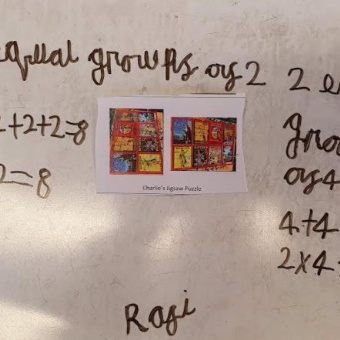 equal groups of 2
2+2+2=8
2=8
Charlie's Jigsaw Puzzle
2 e
gro
of 4
4+4
2x4
Rafi